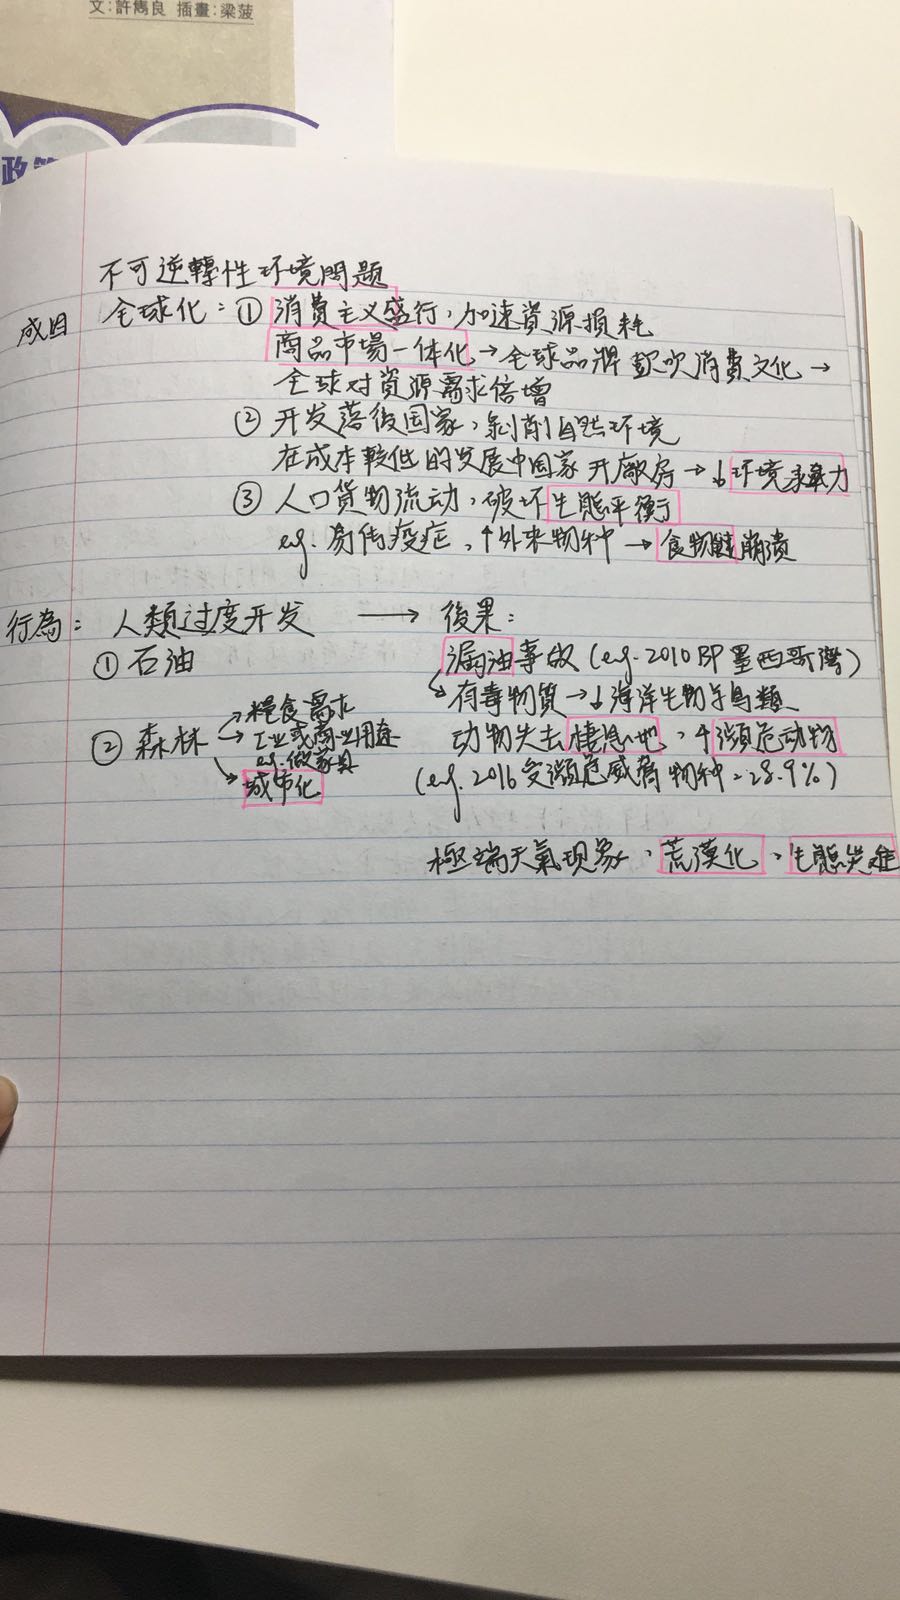 文:許雋良 插畫:梁菠
不可逆轉性环境問題
成因 全球化:① 消費主义盛行,加速資源損耗
商品市場一体化→全球品牌 鼓吹消費文化→
全球对資源需求倍增
② 开发落後国家,剝削自然环境
在成本較低的发展中国家开廠房→↓环境承載力
③ 人口貨物流动,破坏生態平衡
e.g. 易传疫症,↑外來物种→食物鏈崩潰
行為: 人類过度开发 → 後果:
① 石油 漏油事故 (e.g. 2010 BP 墨西哥灣)
↳有毒物質→↓海洋生物与鳥類
② 森林 →糧食需求 动物失去棲息地,↑瀕危动物
→工业或商业用途
e.g. 做家具
→城市化 (e.g. 2016 受瀕危威脅物种=28.9%)
極端天氣現象、荒漠化、生態災难